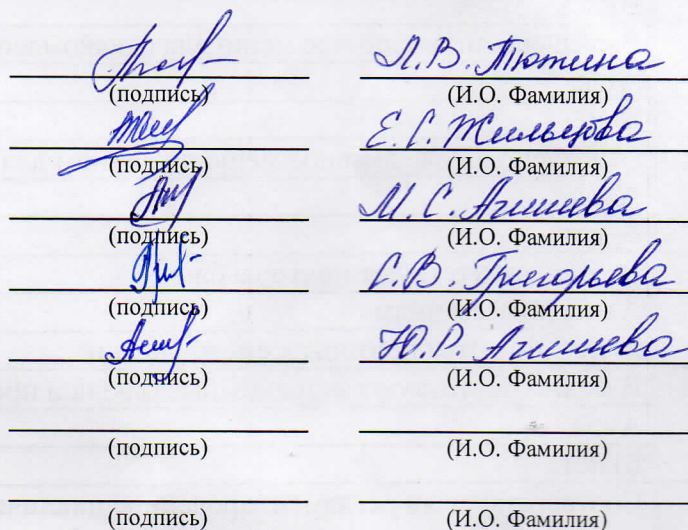 Л.В. Тютина
(подпись) (И.О. Фамилия)
Е.С. Жильцова
(подпись) (И.О. Фамилия)
М.С. Агишева
(подпись) (И.О. Фамилия)
С.В. Григорьева
(подпись) (И.О. Фамилия)
Ю.Р. Агишева
(подпись) (И.О. Фамилия)
(подпись) (И.О. Фамилия)
(подпись) (И.О. Фамилия)